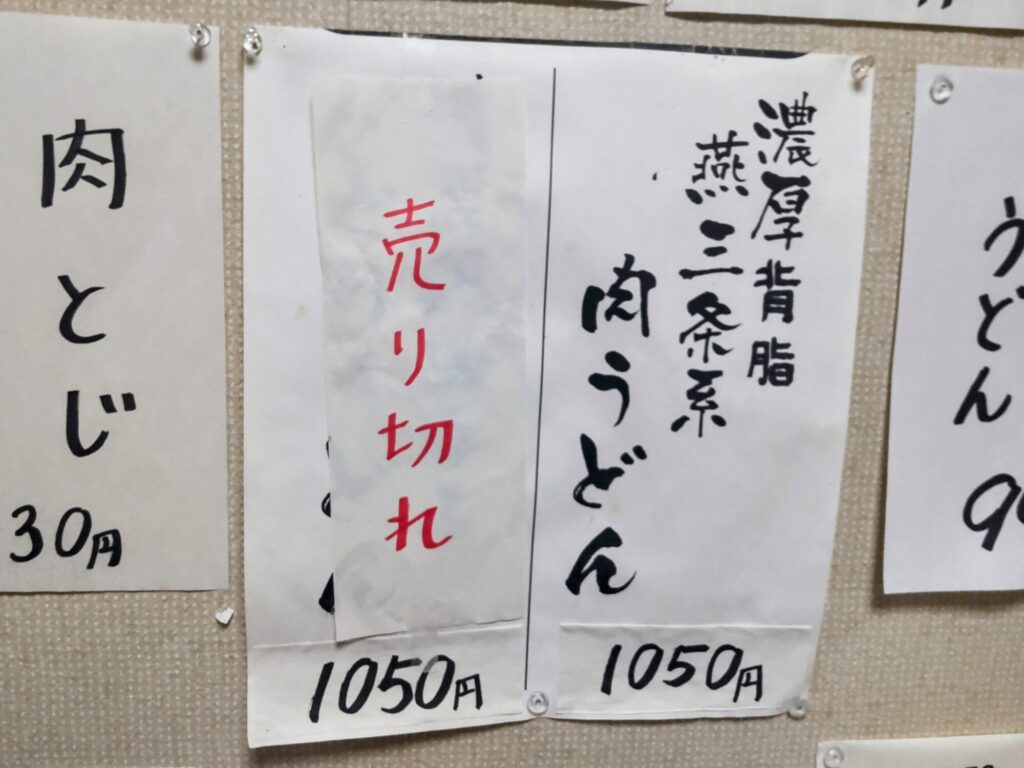 濃厚背脂
燕三条系
肉うどん
1050円
売り切れ
1050円
肉とじ
30円
うどん